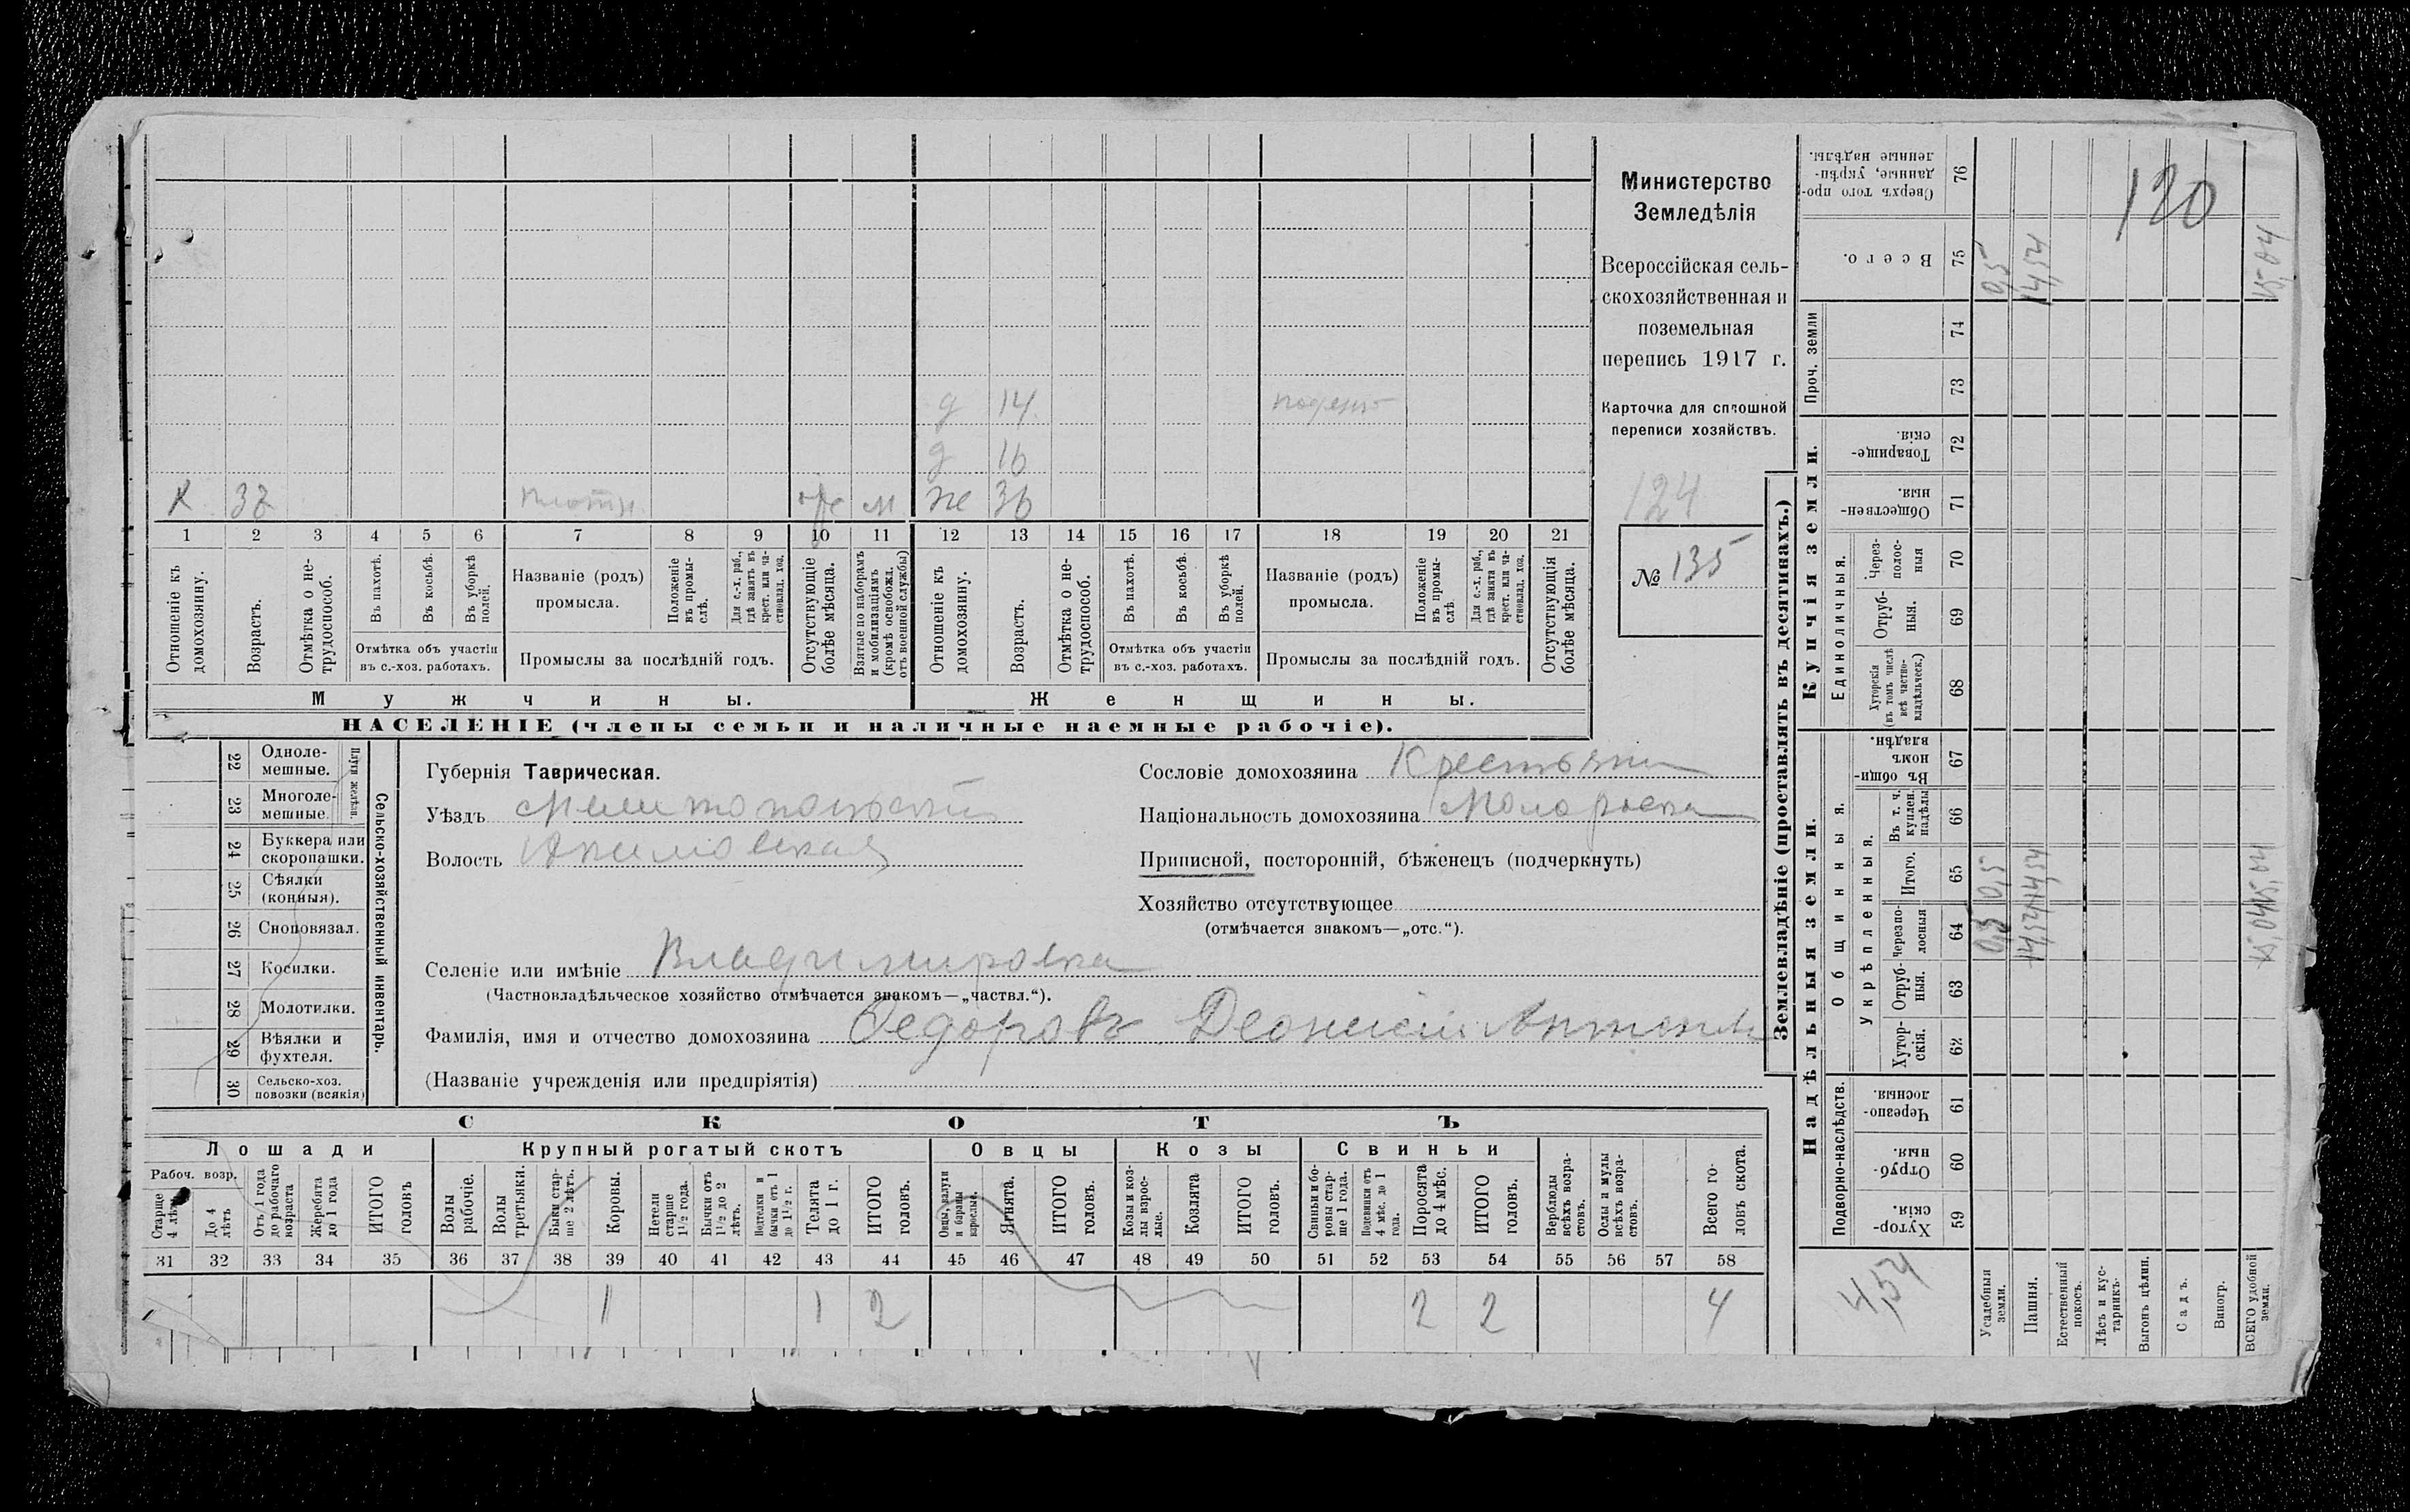 Министерство
Земледѣлія
Всероссійская сель-
скохозяйственная и
поземельная
перепись 1917 г.
Карточка для сплошной
переписи хозяйствъ.
124
№ 135
д 14
д 16
х 37 плотн м же 36
1 2 3 4 5 6 7 8 9 10 11 12 13 14 15 16 17 18 19 20 21
Отношеніе къ домохозяину.
Возрастъ.
Отмѣтка о не-трудоспособ.
Въ пахотѣ.
Въ косьбѣ.
Въ уборкѣ полей.
Отмѣтка объ участіи
въ с.-хоз. работахъ.
Названіе (родъ)
промысла.
Положеніе въ промы-слѣ.
Для с.-х. раб., гдѣ занятъ въ крест. или ча-стновлад. хоз.
Промыслы за послѣдній годъ.
Отсутствующіе болѣе мѣсяца.
Взятые по наборамъ и мобилизаціямъ (кромѣ освобожд. отъ военной службы)
Отношеніе къ домохозяину.
Возрастъ.
Отмѣтка о не-трудоспособ.
Въ пахотѣ.
Въ косьбѣ.
Въ уборкѣ полей.
Отмѣтка объ участіи
въ с.-хоз. работахъ.
Названіе (родъ)
промысла.
Положеніе въ промы-слѣ.
Для с.-х. раб., гдѣ занята въ крест. или ча-стновлад. хоз.
Промыслы за послѣдній годъ.
Отсутствующія болѣе мѣсяца.
Мужчины.
Женщины.
НАСЕЛЕНІЕ (члены семьи и наличные наемные рабочіе).
22 Одноле-мешные.
23 Многоле-мешные.
Плуги желѣзн.
24 Буккера или скоропашки.
25 Сѣялки (конныя).
26 Сноповязал.
27 Косилки.
28 Молотилки.
29 Вѣялки и фухтеля.
30 Сельско-хоз. повозки (всякія)
Сельско-хозяйственный инвентарь.
Губернія Таврическая.
Уѣздъ Мелитопольскій
Волость Акимовская
Сословіе домохозяина Крестьянин
Національность домохозяина Малоросъ
Приписной, посторонній, бѣженецъ (подчеркнуть)
Хозяйство отсутствующее
(отмѣчается знакомъ—„отс.“).
Селеніе или имѣніе Владимировка
(Частновладѣльческое хозяйство отмѣчается знакомъ—„частвл.“).
Фамилія, имя и отчество домохозяина Федоровъ Деонисій Антонов
(Названіе учрежденія или предпріятія)
СКОТЪ
Лошади
Крупный рогатый скотъ
Овцы
Козы
Свиньи
Рабоч. возр.
Старше 4 лѣтъ
До 4 лѣтъ
Отъ 1 года до рабочаго возраста
Жеребята до 1 года
ИТОГО головъ
Волы рабочіе.
Волы третьяки.
Быки стар-ше 2 лѣтъ.
Коровы.
Нетели старше 1½ года.
Бычки отъ 1½ до 2 лѣтъ.
Подтелки и бычки отъ 1 до 1½ г.
Телята до 1 г.
ИТОГО головъ.
Овцы, валухи и бараны взрослые.
Ягнята.
ИТОГО головъ.
Козы и коз-лы взрос-лые.
Козлята
ИТОГО головъ.
Свиньи и бо-ровы стар-ше 1 года.
Подсвинки отъ 4 мѣс. до 1 года.
Поросята до 4 мѣс.
ИТОГО головъ.
Верблюды всѣхъ возра-стовъ.
Ослы и мулы всѣхъ возра-стовъ.
Всего го-ловъ скота.
31 32 33 34 35 36 37 38 39 40 41 42 43 44 45 46 47 48 49 50 51 52 53 54 55 56 57 58
1 1 2 2 2 4
Землевладѣніе (проставлять въ десятинахъ.)
Надѣльныя земли.
Купчія земли.
Проч. земли
Подворно-наслѣдств.
Общинныя.
Укрѣпленныя.
Единоличныя.
Сверхъ того про-данные, укрѣп-ленные надѣлы. 76
Всего. 75
74
73
Товарище-скія. 72
Обществен-ныя. 71
Через-полос-ныя 70
Отруб-ныя. 69
Хуторскія (въ томъ числѣ всѣ частно-владѣльческ.) 68
Въ общи-номъ владѣн. 67
Въ т. ч. куплен. надѣлы 66
Итого. 65
Черезпо-лосныя 64
Отруб-ныя. 63
Хутор-скія. 62
Черезпо-лосныя. 61
Отруб-ныя. 60
Хутор-скія. 59
120
0,5 14,54 15,04
0,5 14,54 15,04
4,54
Усадебныя земли.
Пашня.
Естественный покосъ.
Лѣсъ и кус-тарникъ.
Выгонъ цѣлин.
Садъ.
Виногр.
ВСЕГО удобной земли.